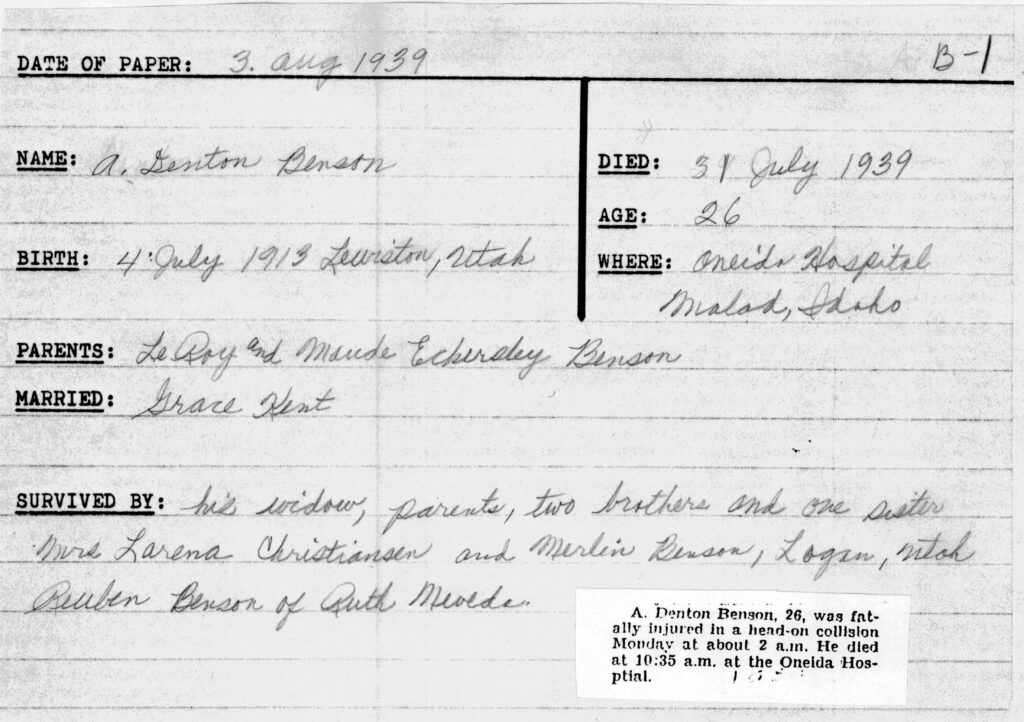 DATE OF PAPER: 3. Aug 1939 B-1
NAME: A. Denton Benson
DIED: 31 July 1939
AGE: 26
BIRTH: 4 July 1913 Lewiston, Utah
WHERE: Oneida Hospital
Malad, Idaho
PARENTS: LeRoy and Maude Eckersley Benson
MARRIED: Grace Kent
SURVIVED BY: his widow, parents, two brothers and one sister
Mrs Larena Christiansen and Merlin Benson, Logan, Utah
Reuben Benson of Ruth Nevada.
A. Denton Benson, 26, was fat-
ally injured in a head-on collision
Monday at about 2 a.m. He died
at 10:35 a.m. at the Oneida Hos-
ptial.